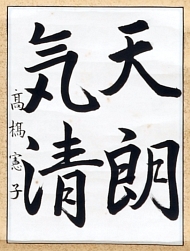 天朗
気清
高橋憲子